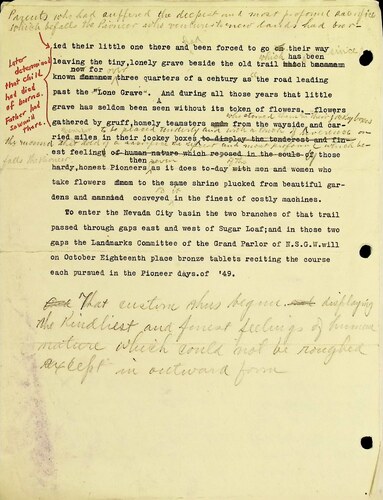 Parents who had suffered the deepest and most profound sacrifice
which befalls the Pioneer who ventures to new lands had bur-
ied their little one there and been forced to go on their way
left
leaving the tiny, lonely grave beside the old trail which has been
which since
now for over
known three quarters of a century as the road leading
past the "Lone Grave". And during all those years that little
grave has seldom been without its token of flowers. flowers
gathered by gruff, homely teamsters from the wayside and car-
ried miles in their jockey boxes to display the tenderest and fin-
to be placed tenderly and with a touch of reverence on
befalls the Pioneer
est feelings of human nature which reposed in the souls of those
then
hardy, honest Pioneers, as it does to-day with men and women who
take flowers to the same shrine plucked from beautiful gar-
dens and conveyed in the finest of costly machines.
To enter the Nevada City basin the two branches of that trail
passed through gaps east and west of Sugar Loaf; and in those two
gaps the Landmarks Committee of the Grand Parlor of N.S.G.W. will
on October Eighteenth place bronze tablets reciting the course
each pursued in the Pioneer days. of '49.
That custom thus begun displaying
the kindliest and finest feelings of human
nature which could not be roughed
except in outward form
Later
determined
that child
had died
of burns.
Father had
sawmill
there.